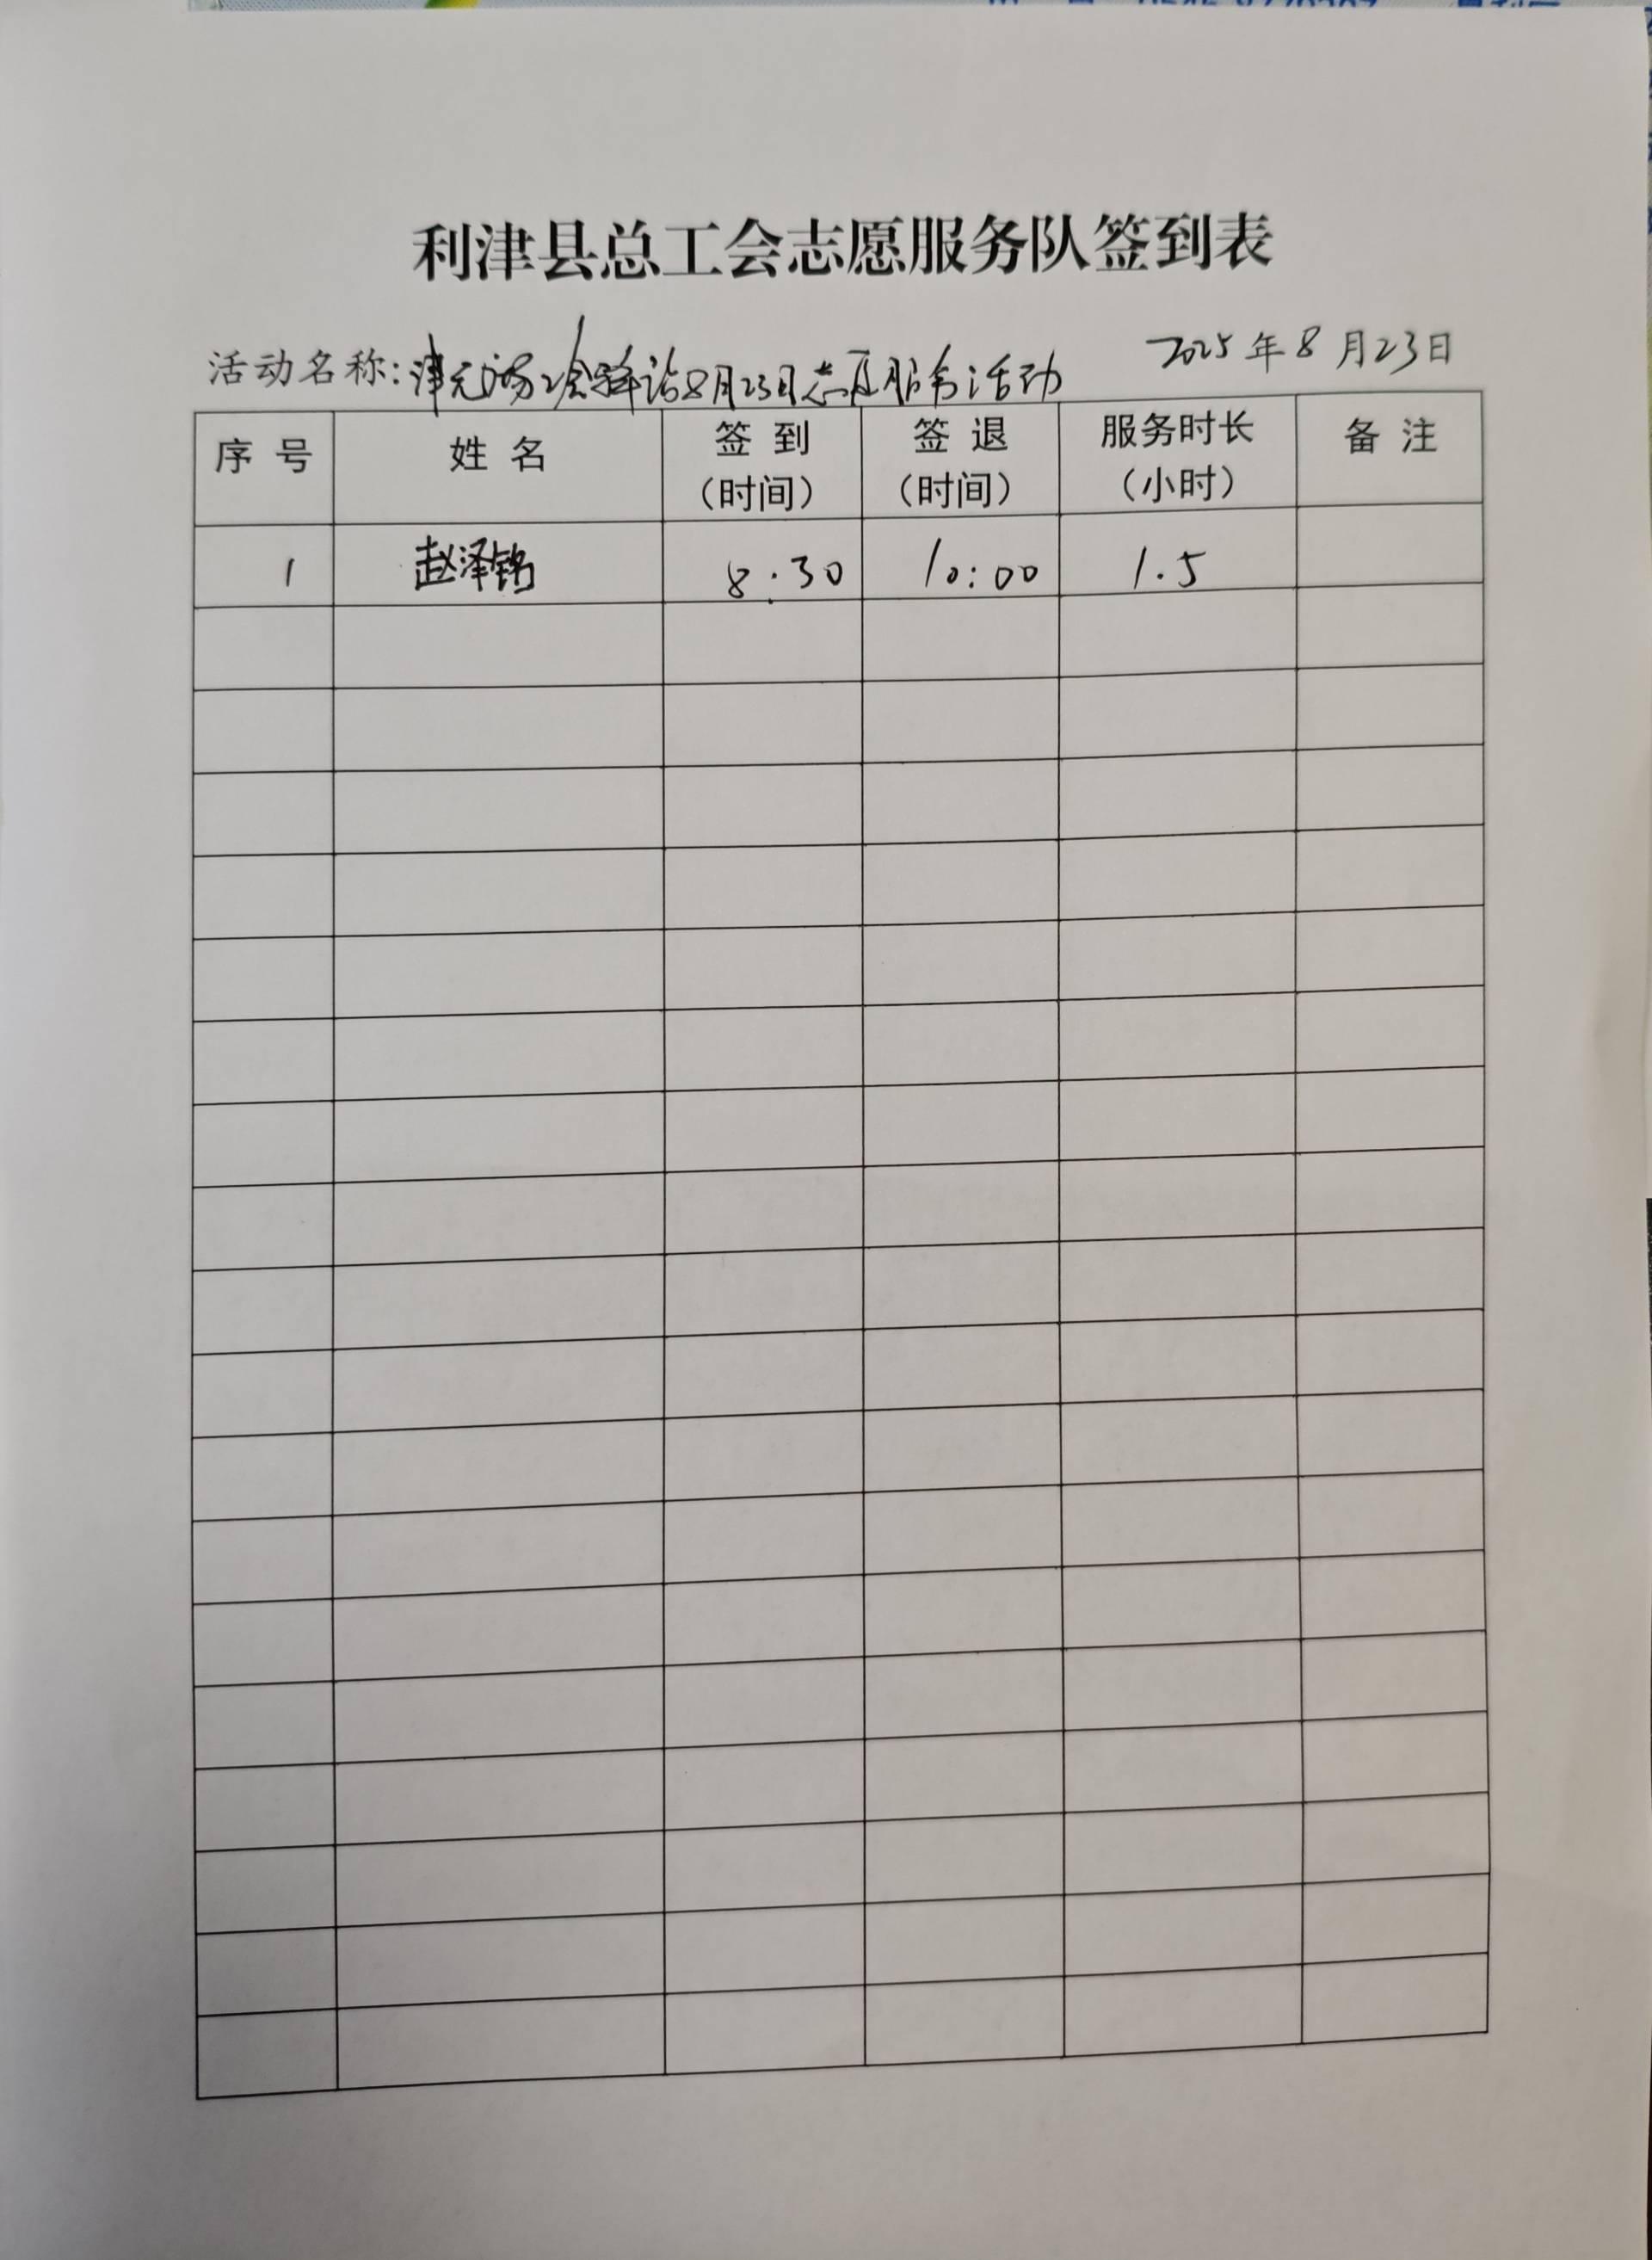 利津县总工会志愿服务队签到表
活动名称:津元广场工会驿站8月23日志愿服务活动 2025年8月23日
序号 姓名 签到(时间) 签退(时间) 服务时长(小时) 备注
1 赵泽铭 8:30 10:00 1.5